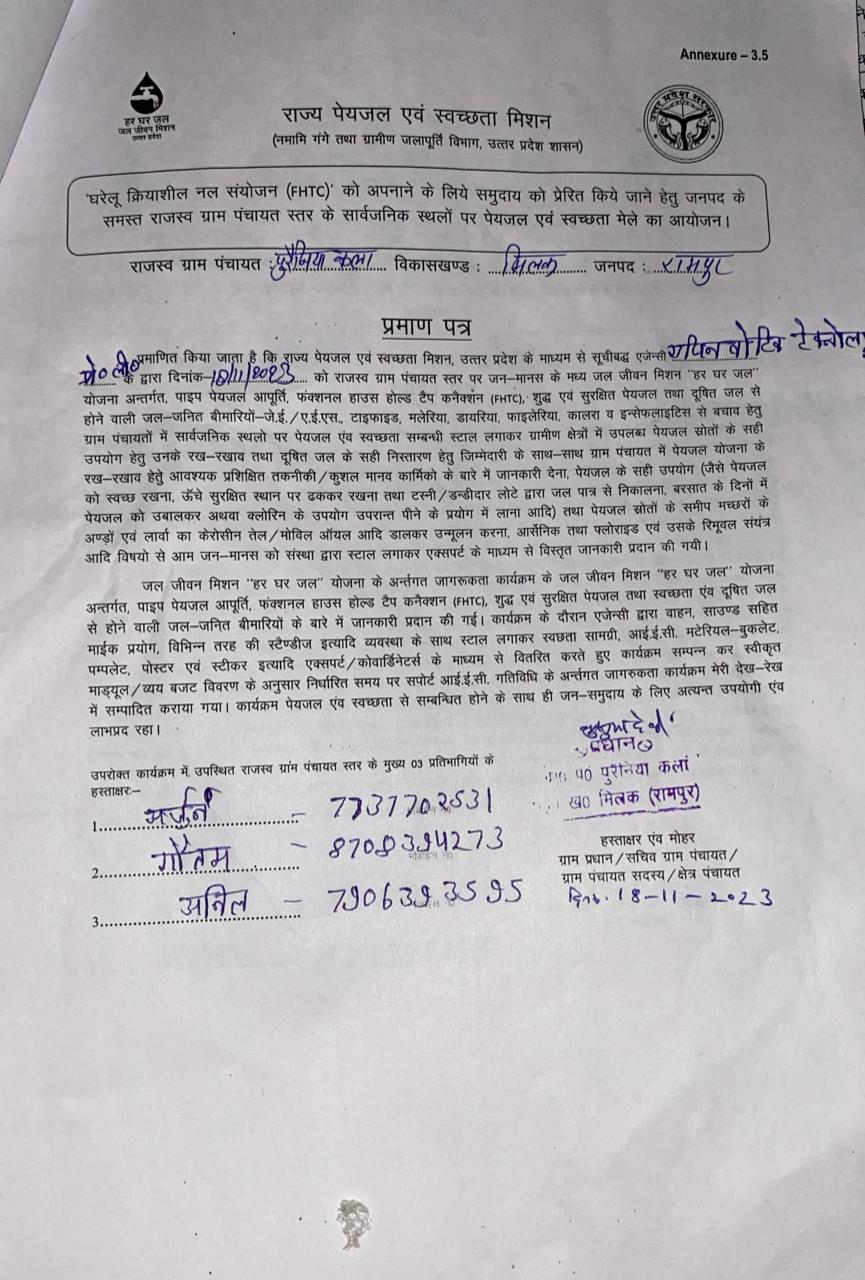 Annexure – 3.5
हर घर जल
जल जीवन मिशन
उत्तर प्रदेश
राज्य पेयजल एवं स्वच्छता मिशन
(नमामि गंगे तथा ग्रामीण जलापूर्ति विभाग, उत्तर प्रदेश शासन)
उत्तर प्रदेश सरकार
'घरेलू क्रियाशील नल संयोजन (FHTC)' को अपनाने के लिये समुदाय को प्रेरित किये जाने हेतु जनपद के
समस्त राजस्व ग्राम पंचायत स्तर के सार्वजनिक स्थलों पर पेयजल एवं स्वच्छता मेले का आयोजन।
राजस्व ग्राम पंचायत : पुरैनिया कला विकासखण्ड : मिलक जनपद : रामपुर
प्रमाण पत्र
प्रमाणित किया जाता है कि राज्य पेयजल एवं स्वच्छता मिशन, उत्तर प्रदेश के माध्यम से सूचीबद्ध एजेन्सी
प्रे० ली० के द्वारा दिनांक-18/11/2023 को राजस्व ग्राम पंचायत स्तर पर जन–मानस के मध्य जल जीवन मिशन "हर घर जल"
योजना अन्तर्गत, पाइप पेयजल आपूर्ति, फंक्शनल हाउस होल्ड टैप कनैक्शन (FHTC), शुद्ध एवं सुरक्षित पेयजल तथा दूषित जल से
होने वाली जल–जनित बीमारियों–जे.ई./ए.ई.एस., टाइफाइड, मलेरिया, डायरिया, फाइलेरिया, कालरा व इन्सेफलाइटिस से बचाव हेतु
ग्राम पंचायतों में सार्वजनिक स्थलो पर पेयजल एंव स्वच्छता सम्बन्धी स्टाल लगाकर ग्रामीण क्षेत्रों में उपलब्ध पेयजल स्रोतों के सही
उपयोग हेतु उनके रख–रखाव तथा दूषित जल के सही निस्तारण हेतु जिम्मेदारी के साथ–साथ ग्राम पंचायत में पेयजल योजना के
रख–रखाव हेतु आवश्यक प्रशिक्षित तकनीकी/कुशल मानव कार्मिको के बारे में जानकारी देना, पेयजल के सही उपयोग (जैसे पेयजल
को स्वच्छ रखना, ऊँचे सुरक्षित स्थान पर ढककर रखना तथा टस्नी/डन्डीदार लोटे द्वारा जल पात्र से निकालना, बरसात के दिनों में
पेयजल को उबालकर अथवा क्लोरिन के उपयोग उपरान्त पीने के प्रयोग में लाना आदि) तथा पेयजल स्रोतों के समीप मच्छरों के
अण्डों एवं लार्वा का केरोसीन तेल/मोविल ऑयल आदि डालकर उन्मूलन करना, आर्सेनिक तथा फ्लोराइड एवं उसके रिमूवल संयंत्र
आदि विषयो से आम जन–मानस को संस्था द्वारा स्टाल लगाकर एक्सपर्ट के माध्यम से विस्तृत जानकारी प्रदान की गयी।
जल जीवन मिशन "हर घर जल" योजना के अर्न्तगत जागरूकता कार्यक्रम के जल जीवन मिशन "हर घर जल" योजना
अन्तर्गत, पाइप पेयजल आपूर्ति, फंक्शनल हाउस होल्ड टैप कनैक्शन (FHTC), शुद्ध एवं सुरक्षित पेयजल तथा स्वच्छता एंव दूषित जल
से होने वाली जल–जनित बीमारियों के बारे में जानकारी प्रदान की गई। कार्यक्रम के दौरान एजेन्सी द्वारा वाहन, साउण्ड सहित
माईक प्रयोग, विभिन्न तरह की स्टैण्डीज इत्यादि व्यवस्था के साथ स्टाल लगाकर स्वछता सामग्री, आई.ई.सी. मटेरियल–बुकलेट,
पम्पलेट, पोस्टर एवं स्टीकर इत्यादि एक्सपर्ट/कोवार्डिनेटर्स के माध्यम से वितरित करते हुए कार्यक्रम सम्पन्न कर स्वीकृत
माड्यूल/व्यय बजट विवरण के अनुसार निर्धारित समय पर सपोर्ट आई.ई.सी. गतिविधि के अर्न्तगत जागरुकता कार्यक्रम मेरी देख–रेख
में सम्पादित कराया गया। कार्यक्रम पेयजल एंव स्वच्छता से सम्बन्धित होने के साथ ही जन–समुदाय के लिए अत्यन्त उपयोगी एंव
लाभप्रद रहा।
प्रधान
पं० पुरैनिया कलां
ख० मिलक (रामपुर)
उपरोक्त कार्यक्रम में उपस्थित राजस्व ग्रांम पंचायत स्तर के मुख्य 03 प्रतिभागियों के
हस्ताक्षरः–
1. अर्जुन – 7737702531
2. गौतम – 8708394273
3. अनिल – 7906393595
हस्ताक्षर एंव मोहर
ग्राम प्रधान/सचिव ग्राम पंचायत/
ग्राम पंचायत सदस्य/क्षेत्र पंचायत
दिनांक. 18-11-2023